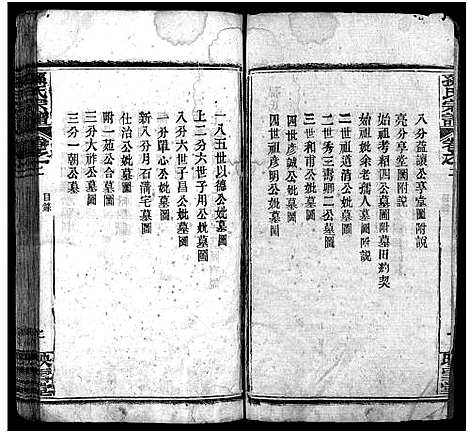 八分益讓公享堂圖附說
亮分享堂圖附說
始祖考相四公墓圖附墓田約契
始祖妣余老孺人墓圖附說
二世秀三壽卿二公墓圖
三世和市公妣墓圖
四世祖道清公妣墓圖
四世彥誠公妣墓圖
四世祖彥明公妣墓圖
孫氏宗譜
卷之二
目錄
一八五世以德公妣墓圖
上二分六世子用公妣墓圖
八分六世子昌公妣墓圖
一分單心公妣墓圖
新八分月石灣宅墓圖
仕治公妣墓圖
附一苑公合墓圖
三分大祚公墓圖
三分一朝公墓